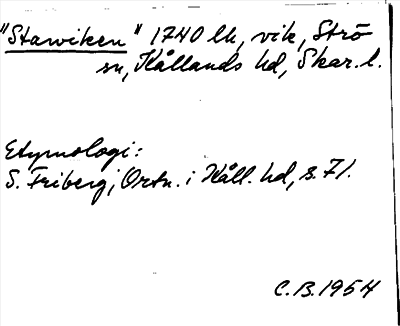 "Stawiken" 1740 lk, vik, Strö
sn, Kållands hd, Skar. l.
Etymologi:
S. Friberg, Ortn. i Kåll. hd, s. 71.
C.B. 1954